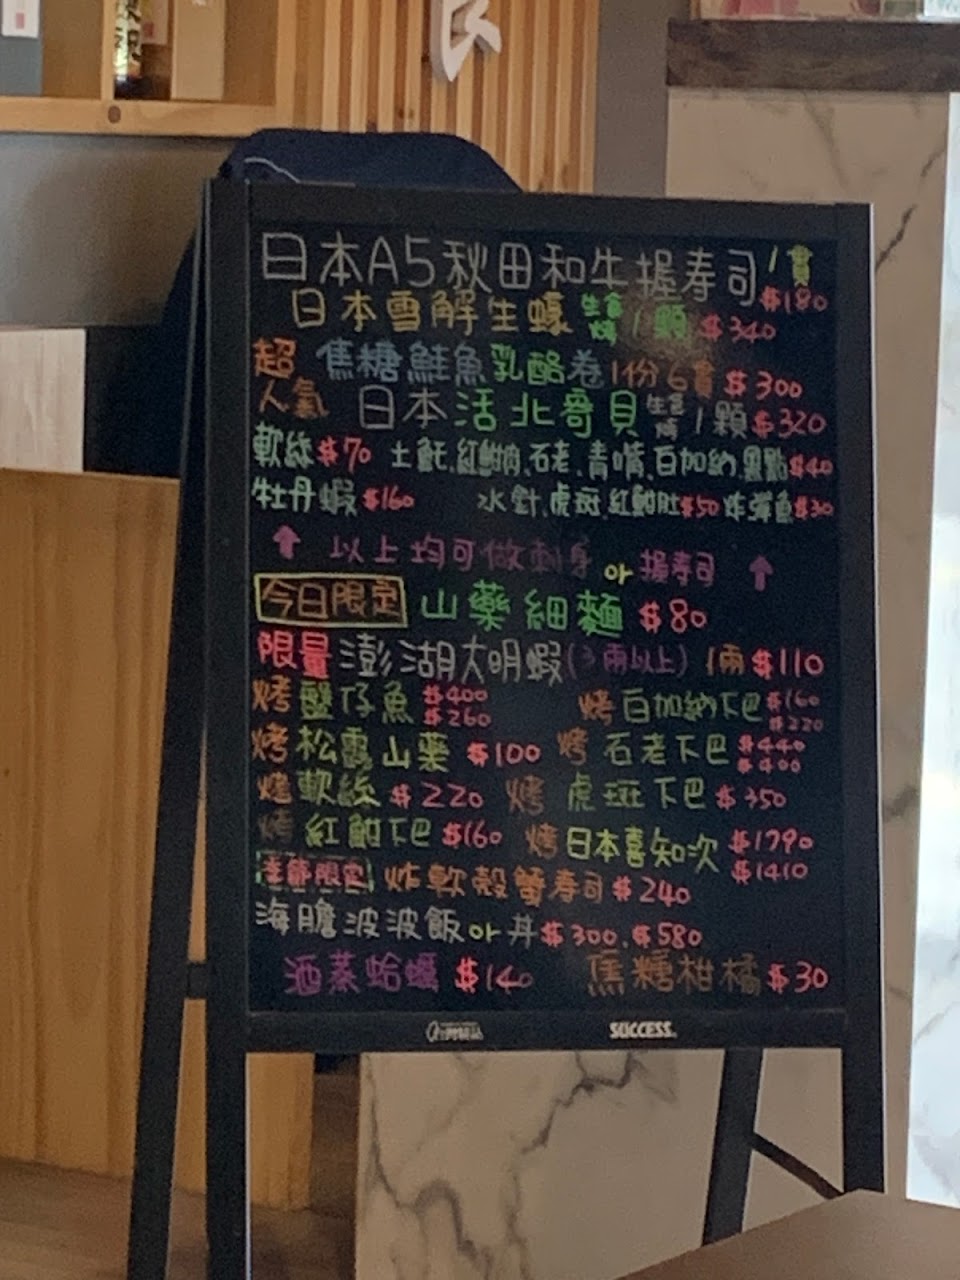 日本A5秋田和牛握寿司 1貫 $180
日本雪解生蠔 生食 烤 1顆 $340
超人氣 焦糖鮭魚乳酪卷 1份6貫 $300
日本活北寄貝 生食 烤 1顆 $320
軟絲$70 土魠.紅魽肉.石老.青嘴.白加納.黑點$40
牡丹蝦$160 水針.虎斑.紅魽肚$50 炸彈魚$30
↑ 以上均可做刺身 or 握寿司 ↑
今日限定 山藥細麵 $80
限量 澎湖大明蝦(3兩以上) 1兩 $110
烤盤仔魚 $400 $260 烤 白加納下巴 $160 $220
烤松露山藥 $100 烤 石老下巴 $440 $400
烤軟絲 $220 烤 虎斑下巴 $350
烤紅魽下巴 $160 烤 日本喜知次 $1790 $1410
季節限定 炸軟殼蟹寿司 $240
海膽波波飯 or 丼 $300.$580
酒蒸蛤蠣 $140 焦糖柑橘 $30
SUCCESS